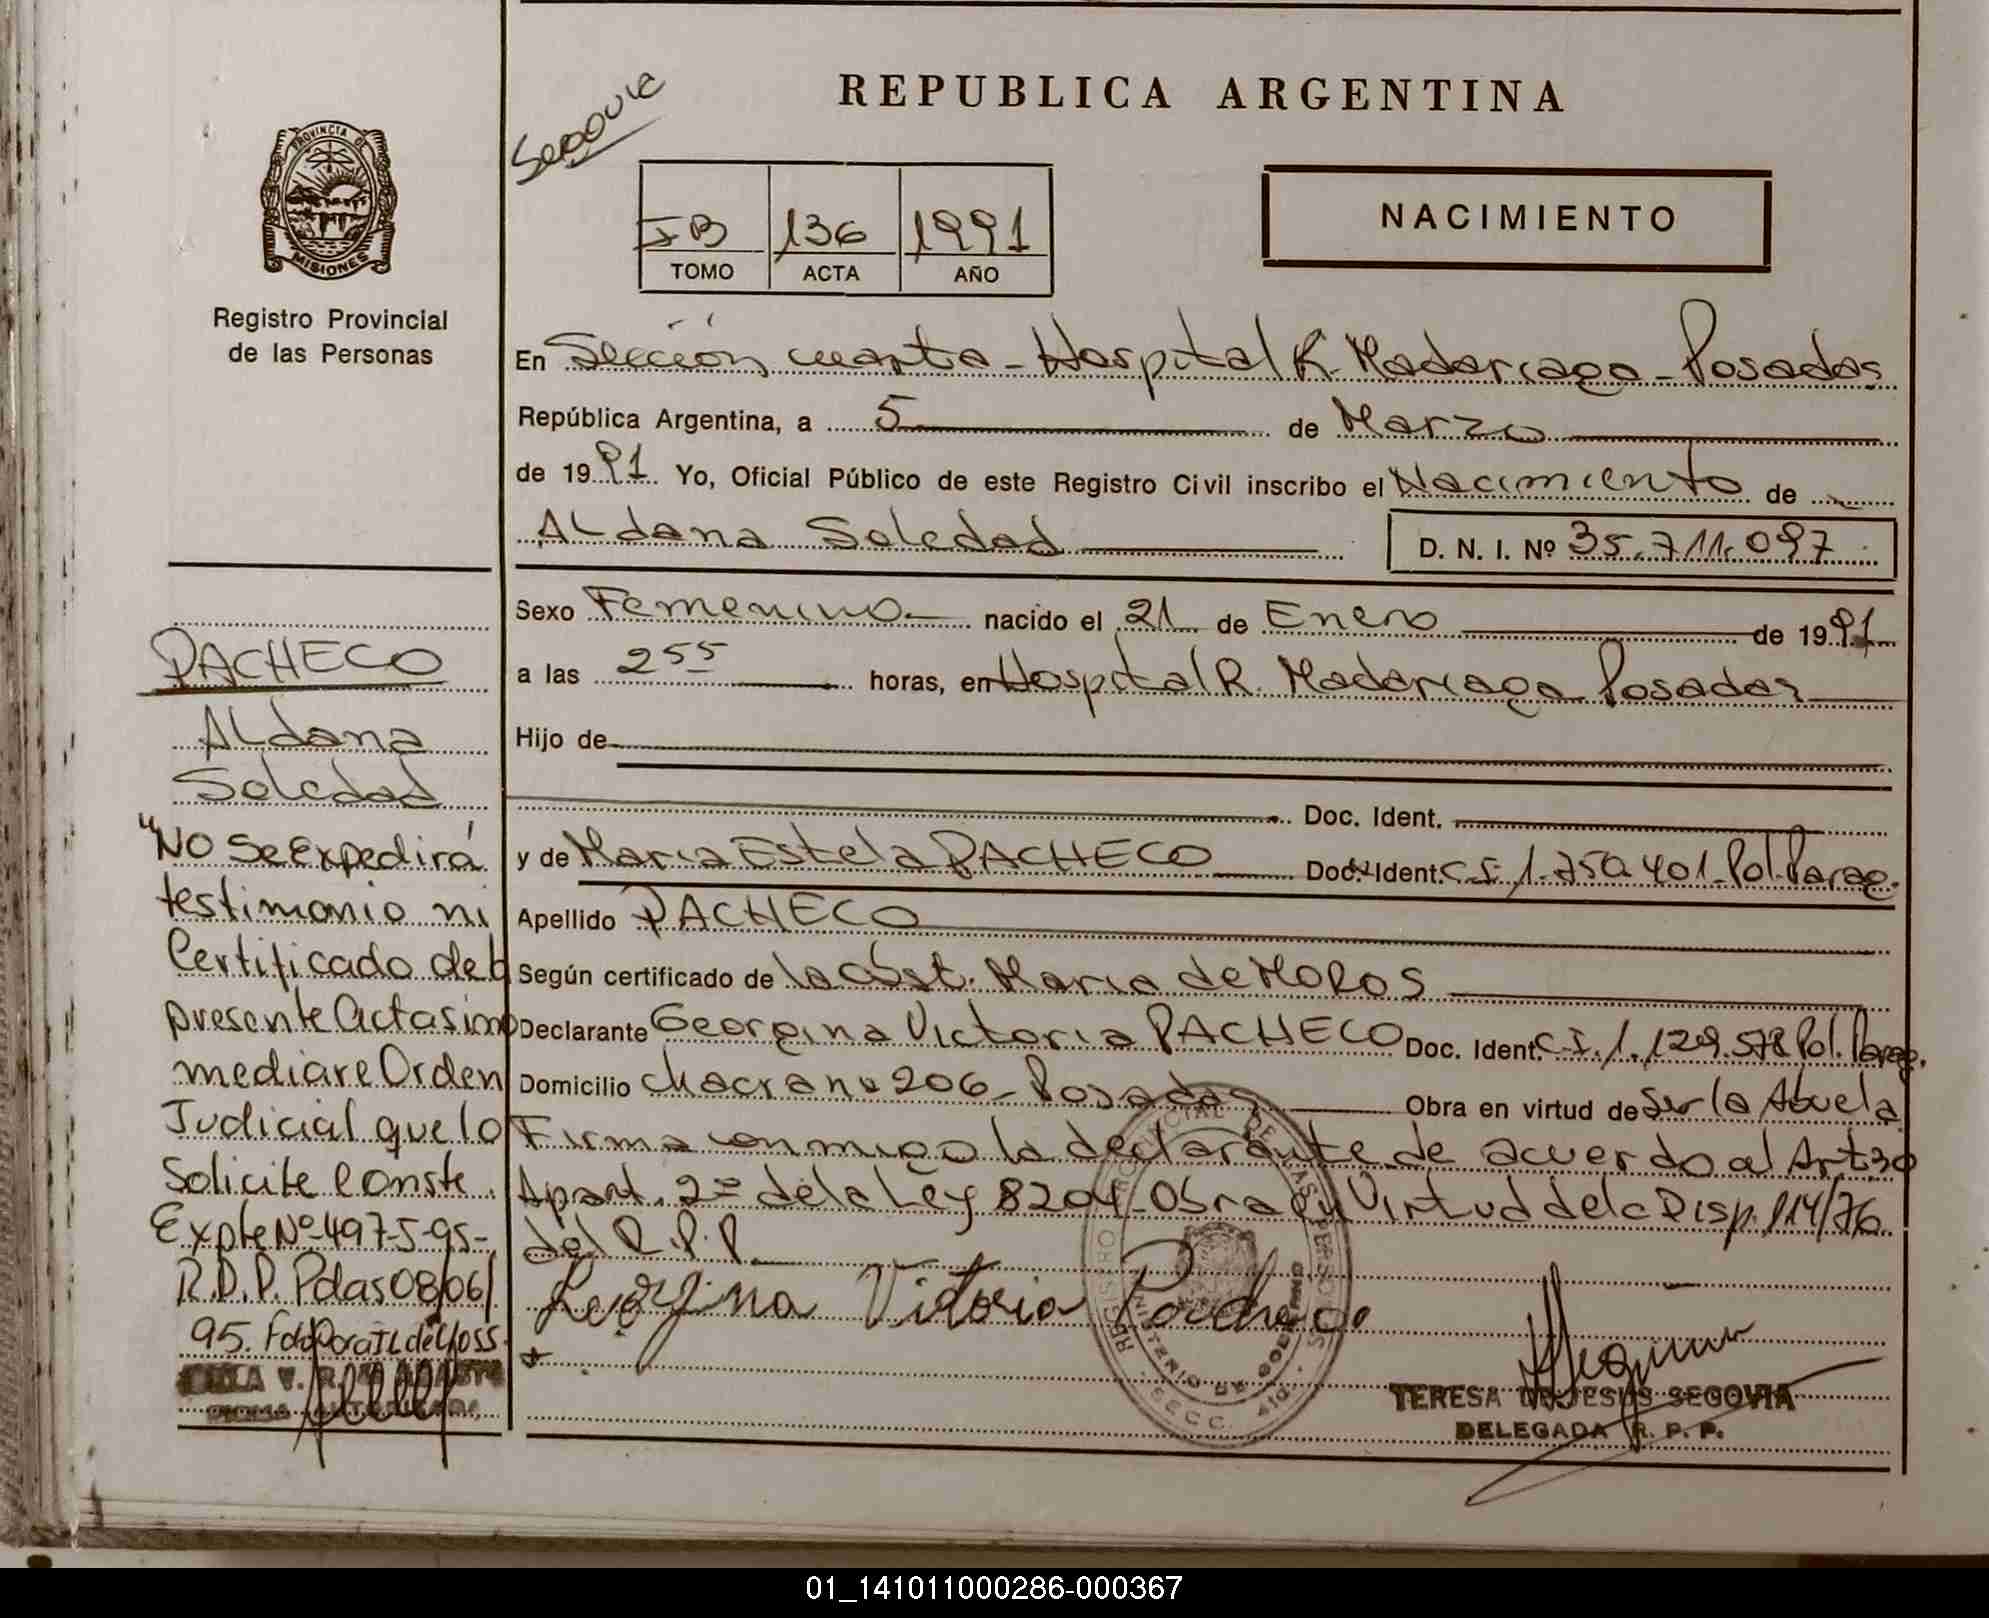 REPUBLICA ARGENTINA
PROVINCIA DE
MISIONES
Registro Provincial
de las Personas
136 1991
TOMO ACTA AÑO
NACIMIENTO
En Sección cuarta - Hospital R. Madariaga - Posadas
República Argentina, a 5 de Marzo
de 1991 Yo, Oficial Público de este Registro Civil inscribo el Nacimiento de
ALdana Soledad D. N. I. Nº 35.711.097
Sexo Femenino nacido el 21 de Enero de 1991
a las 2 55 horas, en Hospital R. Madariaga Posadas
Hijo de
Doc. Ident.
y de Maria Estela PACHECO Doc. Ident. C.I. 1.750.401 Pol. Parag.
Apellido PACHECO
Según certificado de la Obst. Maria de MOROS
Declarante Georgina Victoria PACHECO Doc. Ident. C.I. 1.129.578 Pol. Parag.
Domicilio chacra nº 206 - Posadas Obra en virtud de Ser la Abuela
Firma conmigo la declarante de acuerdo al Art 30
Apart. 2º de la Ley 8204 - Obra en Virtud de la Disp. 114/76
del R.P.P.
Georgina Victoria Pacheco
TERESA DE JESUS SEGOVIA
DELEGADA R. P. P.
PACHECO
ALdana
Soledad
"No se expedirá
testimonio ni
Certificado de la
presente Acta sino
mediare Orden
Judicial que lo
Solicite Conste.
Expte Nº 497-5-95-
R.D.P. Pdas 08/06/
95.
01_141011000286-000367